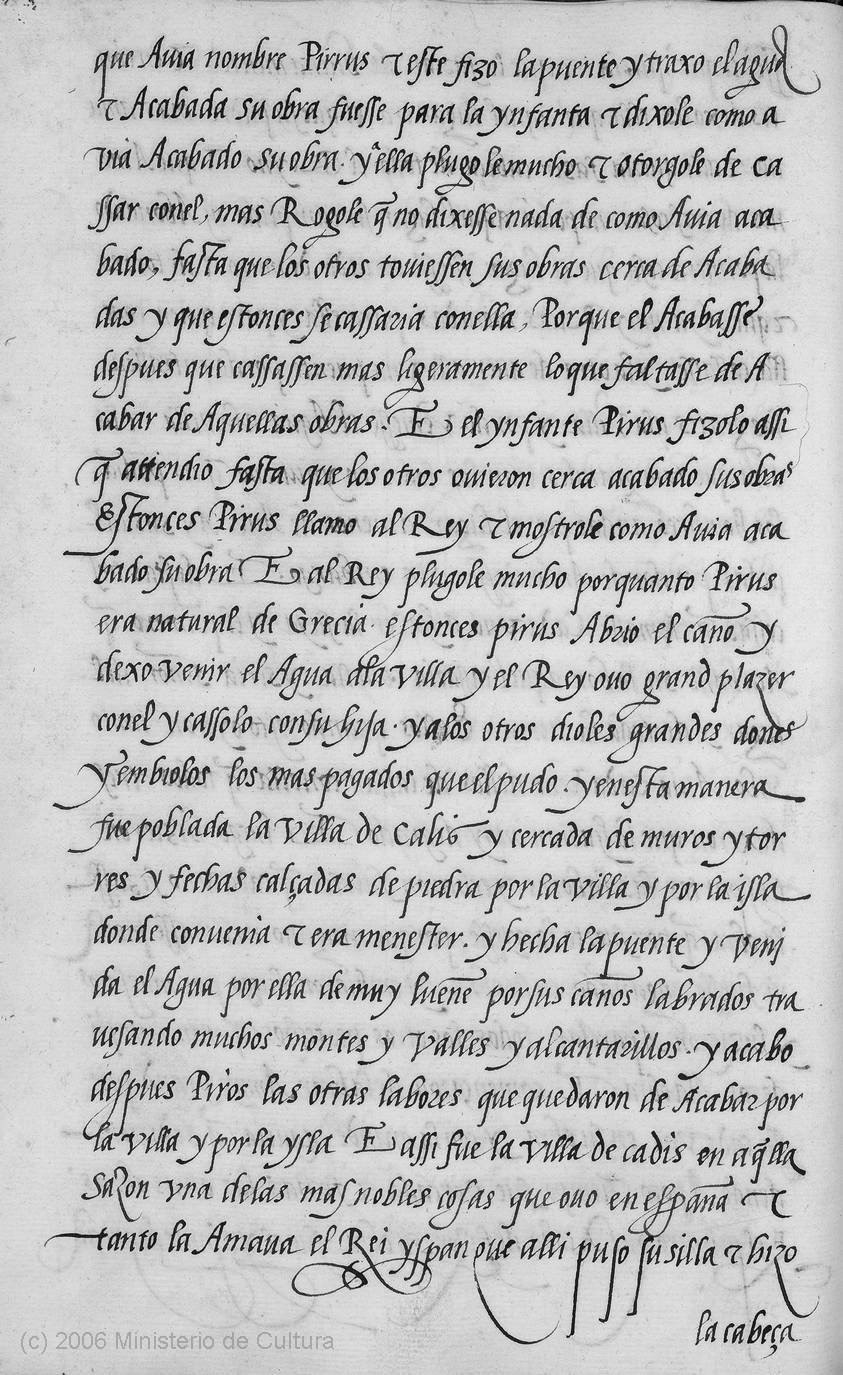 que Avia nombre Pirrus τ este fizo lapuente y traxo el agua
τ Acabada su obra fuesse para la ynfanta τ dixole como a
via Acabado su obra. y ella plugole mucho τ otorgole de ca
ssar conel, mas Rogole q̃ no dixesse nada de como Avia aca
bado, fasta que los otros toviessen sus obras cerca de Acaba
das y que estonces se cassaria conella, Porque el Acabasse
despues que cassassen mas ligeramente loque faltasse de A
cabar de Aquellas obras. E el ynfante Pirus fizolo assi
q̃ attendio fasta que los otros ovieron cerca acabado sus obras
Estonces Pirus llamo al Rey τ mostrole como Avia aca
bado su obra E al Rey plugole mucho porquanto Pirus
era natural de Grecia. estonces pirus Abrio el caño y
dexo venir el Agua ala villa y el Rey ovo grand plazer
conel y cassolo con su hija. y alos otros dioles grandes dones
y embiolos los mas pagados que el pudo. y enesta manera
fue poblada la villa de Calis y cercada de muros y tor
res y fechas calçadas de piedra por la villa y por la isla
donde convenia τ era menester. y hecha lapuente y veni
da el Agua por ella de muy lueñe por sus caños labrados tra
uesando muchos montes y valles y alcantarillos. y acabo
despues Piros las otras labores que quedaron de Acabar por
la villa y por la ysla E assi fue la villa de cadis en aq̃lla
sazon vna delas mas nobles cosas que ovo en españa τ
tanto la Amaua el Rei yspan que alli puso su silla τ hizo
la cabeça
(c) 2006 Ministerio de Cultura